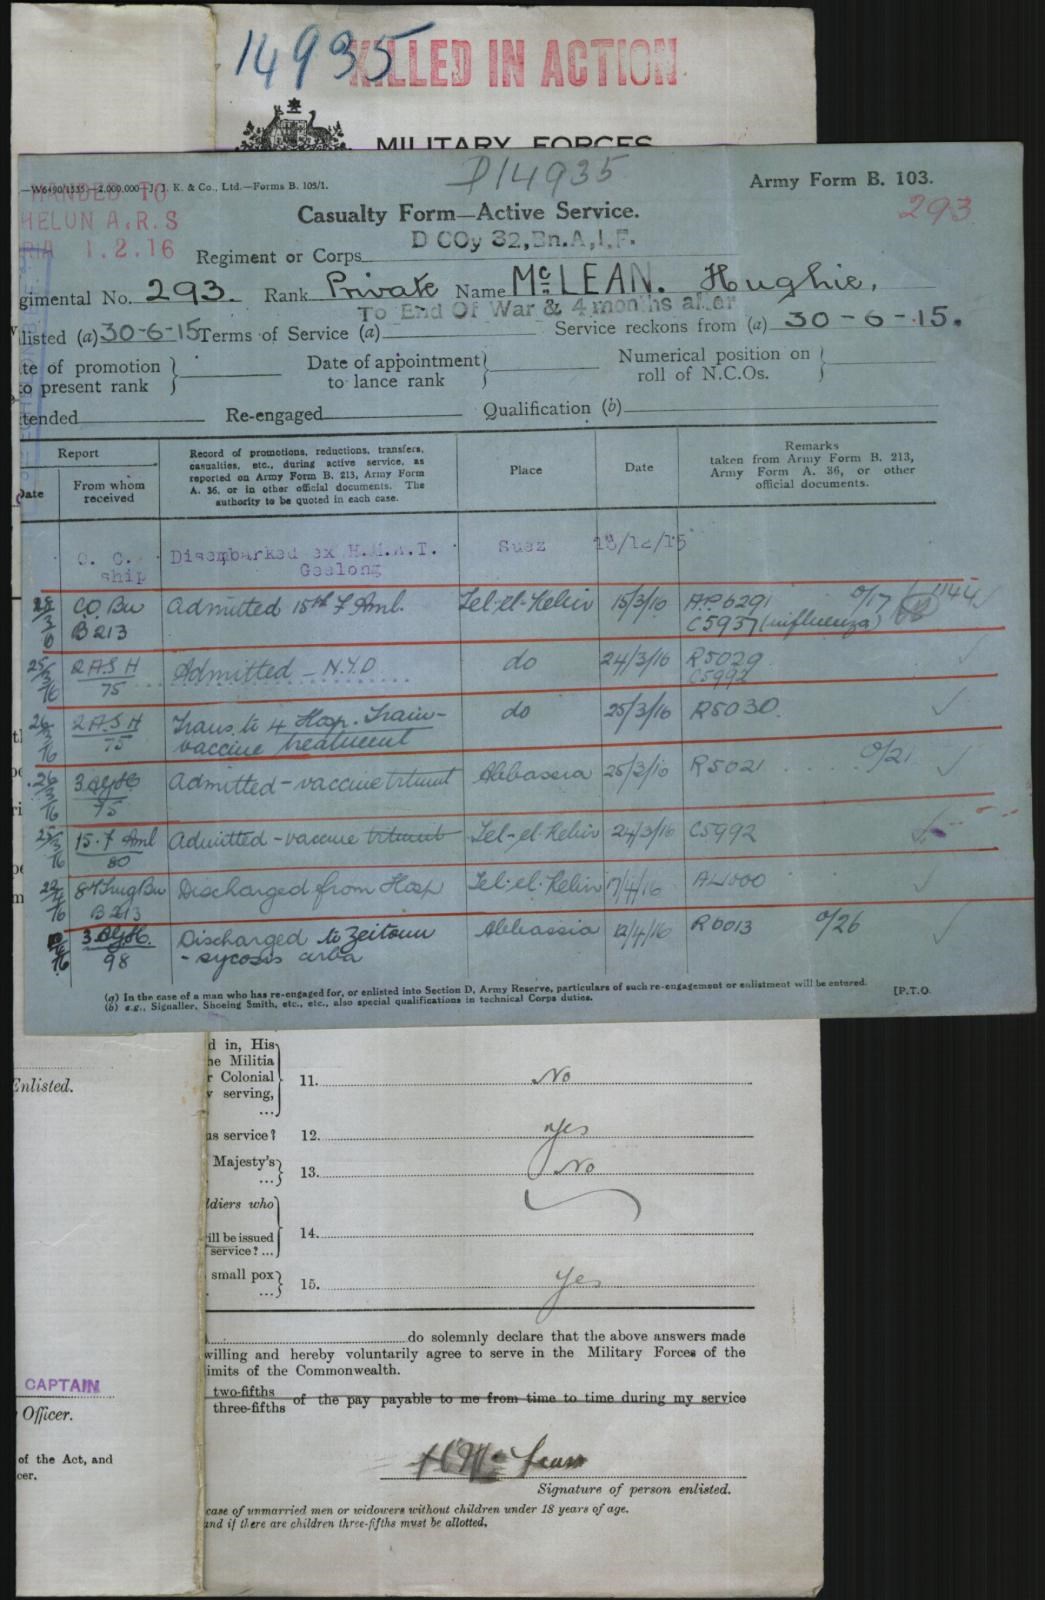 14935 KILLED IN ACTION
MILITARY FORCES
—W6490/1535—2,000,000—J. J. K. & Co., Ltd.—Forms B. 103/1.
D14935
Army Form B. 103.
HANDED TO
HELUN A.R.S
RIA 1.2.16
293
Casualty Form—Active Service.
D COy 32,Bn.A,I.F.
Regiment or Corps
gimental No. 293. Rank Private Name McLEAN. Hughie,
To End Of War & 4 months after
listed (a) 30-6-15 Terms of Service (a) Service reckons from (a) 30-6-15.
te of promotion to present rank } Date of appointment to lance rank } Numerical position on roll of N.C.Os. }
tended Re-engaged Qualification (b)
Report
Date
From whom received
Record of promotions, reductions, transfers, casualties, etc., during active service, as reported on Army Form B. 213, Army Form A. 36, or in other official documents. The authority to be quoted in each case.
Place
Date
Remarks taken from Army Form B. 213, Army Form A. 36, or other official documents.
O. C. ship Disembarked ex H.M.A.T. Geelong Suez 18/12/15
CO. Bn B213 Admitted 15th F Aml. Tel-el-Kebir 15/3/16 C5937 (influenza) 0/17 1144
25/3/16 2 A S H 75 Admitted - N.Y.D do 24/3/16 R5029 C5992
26/3/16 2 A.S.H 75 Trans. to 4 Hosp. Train- vaccine treatment do 25/3/16 R5030.
26/3/16 3 AGH 75 Admitted - vaccine trtmnt Abbassia 25/3/16 R5021 0/21
25/3/16 15. F Aml 80 Admitted - vaccine trtmnt Tel-el-Kebir 24/3/16 C5992
8 Trng Bn B213 Discharged from Hosp Tel-el-Kebir 17/4/16
3 AGH. 98 Discharged to Zeitoun - sycosis arba Abbassia 12/4/16 R6013 0/26
(a) In the case of a man who has re-engaged for, or enlisted into Section D, Army Reserve, particulars of such re-engagement or enlistment will be entered.
(b) e.g., Signaller, Shoeing Smith, etc., etc., also special qualifications in technical Corps duties.
[P.T.O.
d in, His
he Militia
r Colonial
y serving,
... 11. No
Enlisted.
us service? 12. Yes
Majesty's
... 13. No
ldiers who
ill be issued
service? ... 14.
small pox
... 15. Yes
do solemnly declare that the above answers made
willing and hereby voluntarily agree to serve in the Military Forces of the
imits of the Commonwealth.
two-fifths
three-fifths of the pay payable to me from time to time during my service
CAPTAIN
Officer.
of the Act, and
cer.
H McLean
Signature of person enlisted.
case of unmarried men or widowers without children under 18 years of age.
and if there are children three-fifths must be allotted.